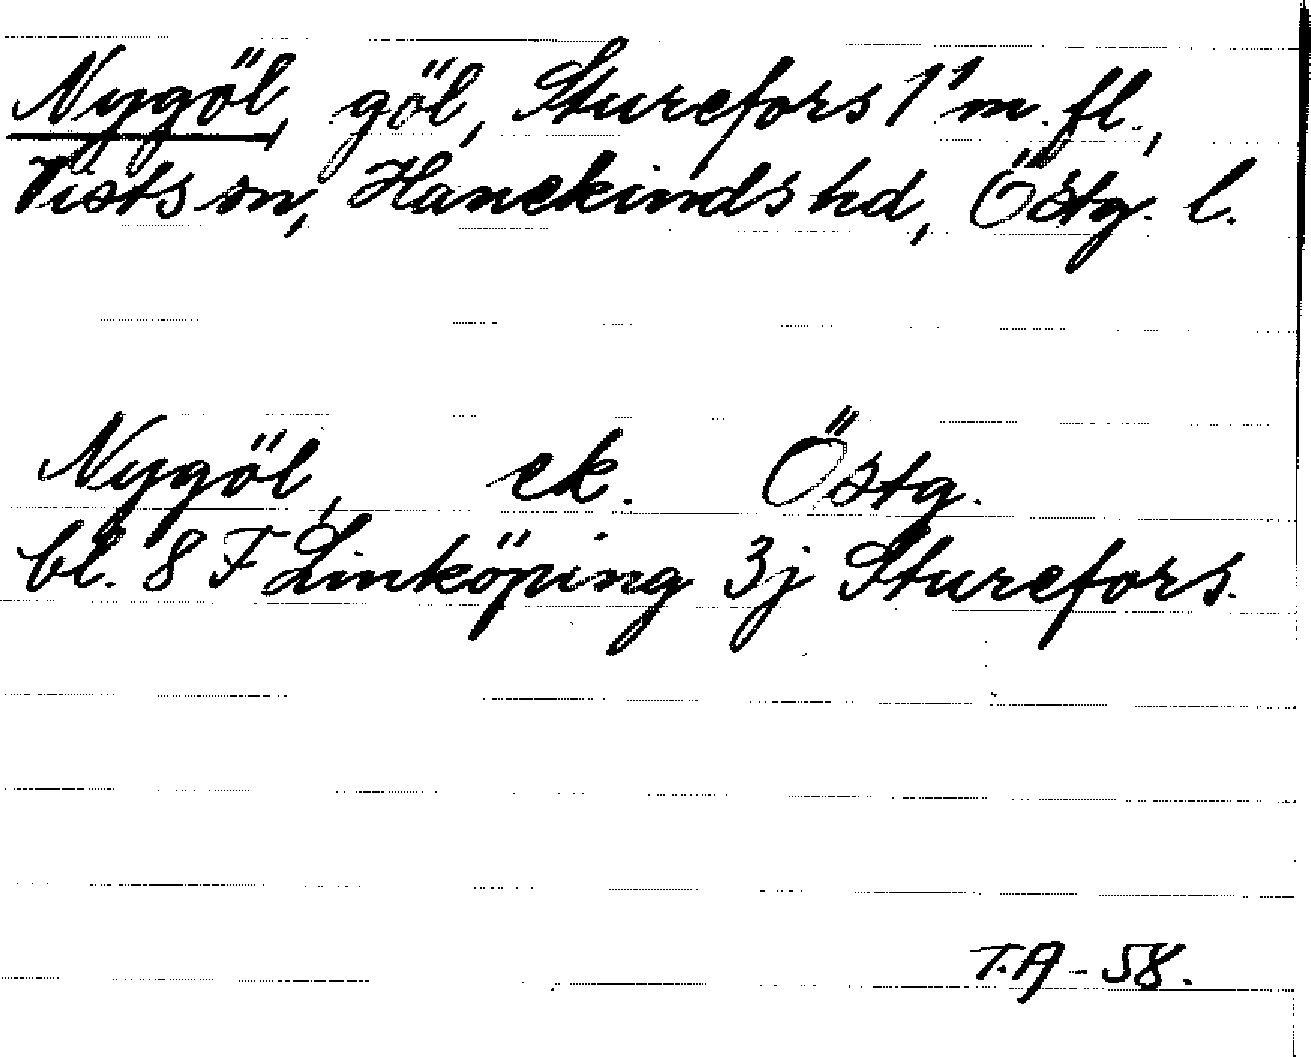 Nygöl, göl, Sturefors 1¹ m. fl.,
Vists sn, Hanekinds hd, Östg. l.
Nygöl, ek. Östg.
bl. 8 F Linköping 3j Sturefors.
T.A - 58.